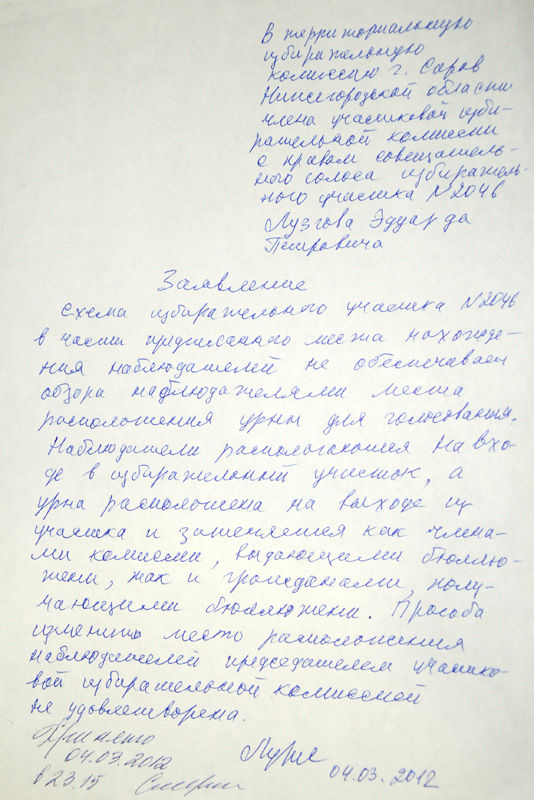 В территориальную
избирательную
комиссию г. Саров
Нижегородской области
члена участковой изби-
рательной комиссии
с правом совещатель-
ного голоса избиратель-
ного участка №2046
Лузгова Эдуарда
Петровича
Заявление
Схема избирательного участка №2046
в части предписанного места нахожде-
ния наблюдателей не обеспечивает
обзора наблюдателями места
расположения урны для голосования.
Наблюдатели распологаются на вхо-
де в избирательный участок, а
урна расположена на выходе из
участка и затеняется как члена-
ми комиссии, выдающими бюллю-
тени, так и гражданами, полу-
чающими бюллютени. Прозьба
изменить место расположения
наблюдателей председателем участко-
вой избирательной комиссией
не удовлетворена.
Принято
04.03.2012
в 23.15
04.03.2012